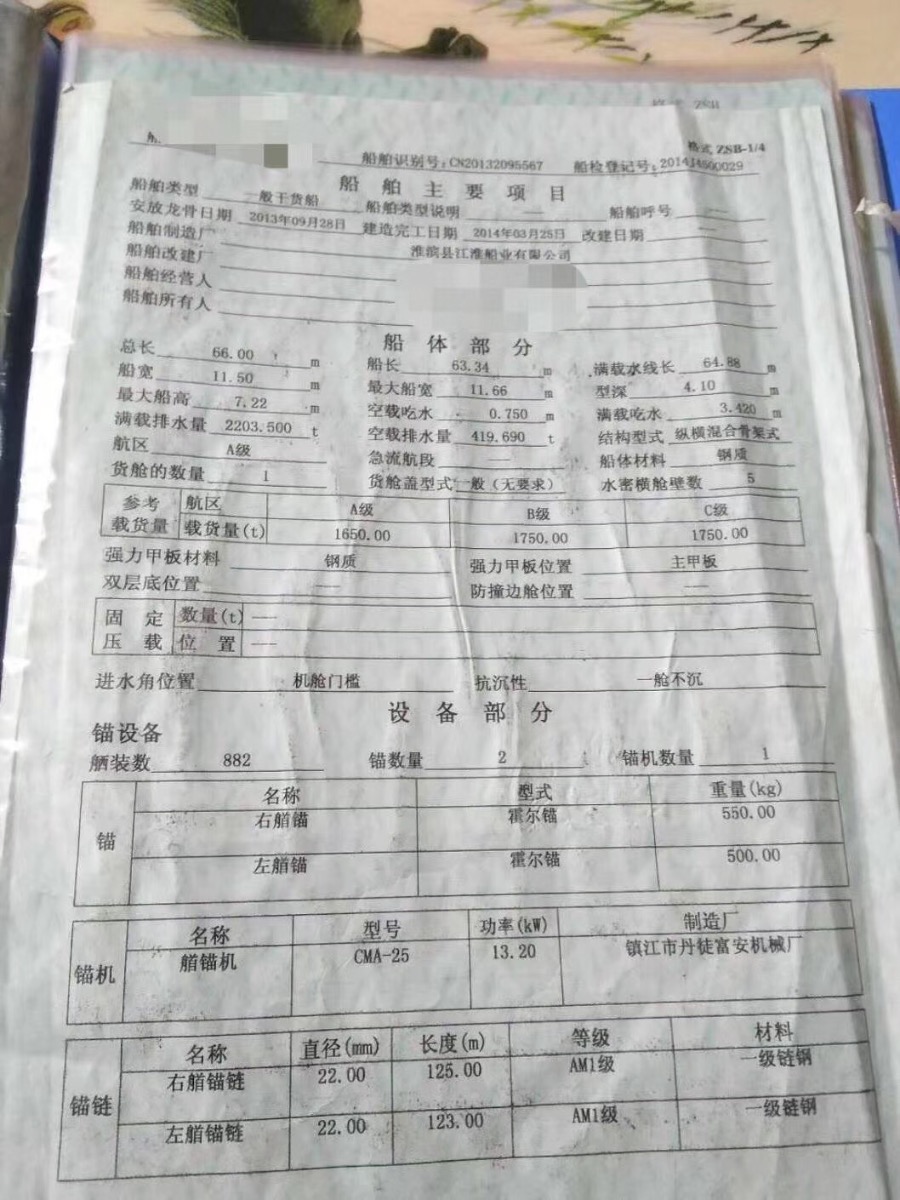 格式 ZSB-1/4
船舶识别号：CN20132095567 船检登记号：2014J4500029
船 舶 主 要 项 目
船舶类型 一般干货船 船舶类型说明 — 船舶呼号 —
安放龙骨日期 2013年09月28日 建造完工日期 2014年03月25日 改建日期 —
船舶制造厂 淮滨县江淮船业有限公司
船舶改建厂
船舶经营人
船舶所有人
船 体 部 分
总长 66.00 m 船长 63.34 m 满载水线长 64.88 m
船宽 11.50 m 最大船宽 11.66 m 型深 4.10 m
最大船高 7.22 m 空载吃水 0.750 m 满载吃水 3.420 m
满载排水量 2203.500 t 空载排水量 419.690 t 结构型式 纵横混合骨架式
航区 A级 急流航段 — 船体材料 钢质
货舱的数量 1 货舱盖型式 一般（无要求） 水密横舱壁数 5
参考载货量 航区 A级 B级 C级
载货量(t) 1650.00 1750.00 1750.00
强力甲板材料 钢质 强力甲板位置 主甲板
双层底位置 — 防撞边舱位置 —
固 定 数量(t) —
压 载 位 置 —
进水角位置 机舱门槛 抗沉性 一舱不沉
设 备 部 分
锚设备
舾装数 882 锚数量 2 锚机数量 1
锚 名称 型式 重量(kg)
右艏锚 霍尔锚 550.00
左艏锚 霍尔锚 500.00
锚机 名称 型号 功率(kW) 制造厂
艏锚机 CMA-25 13.20 镇江市丹徒富安机械厂
锚链 名称 直径(mm) 长度(m) 等级 材料
右艏锚链 22.00 125.00 AM1级 一级链钢
左艏锚链 22.00 123.00 AM1级 一级链钢